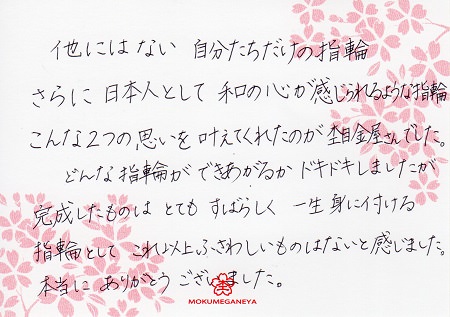 他にはない 自分たちだけの指輪
さらに 日本人として 和の心が感じられるような指輪
こんな2つの思いを叶えてくれたのが 杢目金屋さんでした。
どんな指輪が できあがるか ドキドキしましたが
完成したものは とても すばらしく 一生 身に付ける
指輪として これ以上ふさわしいものはないと感じました。
本当に ありがとう ございました。
MOKUMEGANEYA